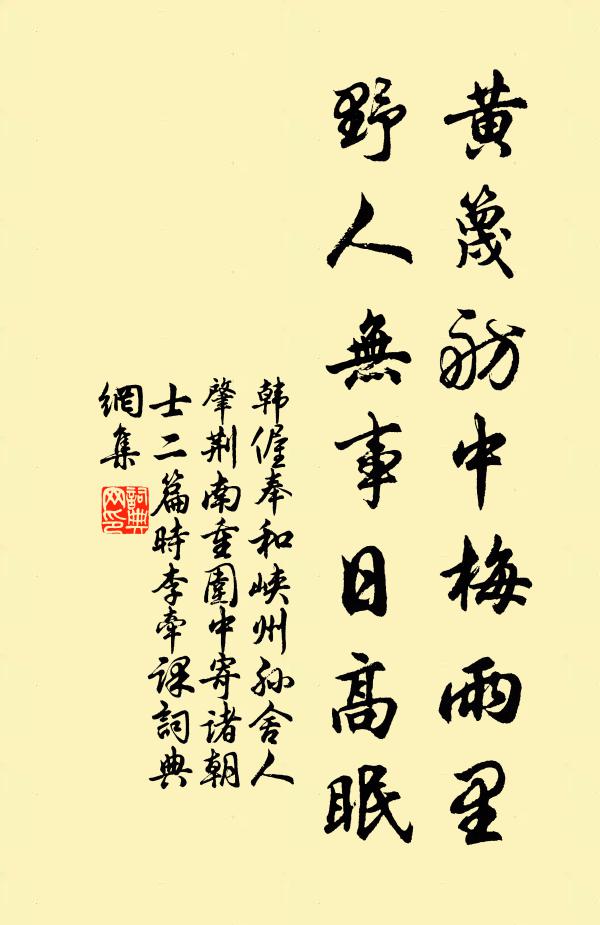 黄蔑舫中梅雨里
野人無事日高眠
韩偓奉和峡州孙舍人
肇荆南重圍中寄诸朝
士二篇時李牵课詞典
網集
詞典
网印